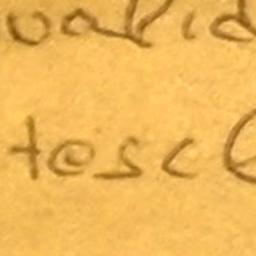 valid
tesc